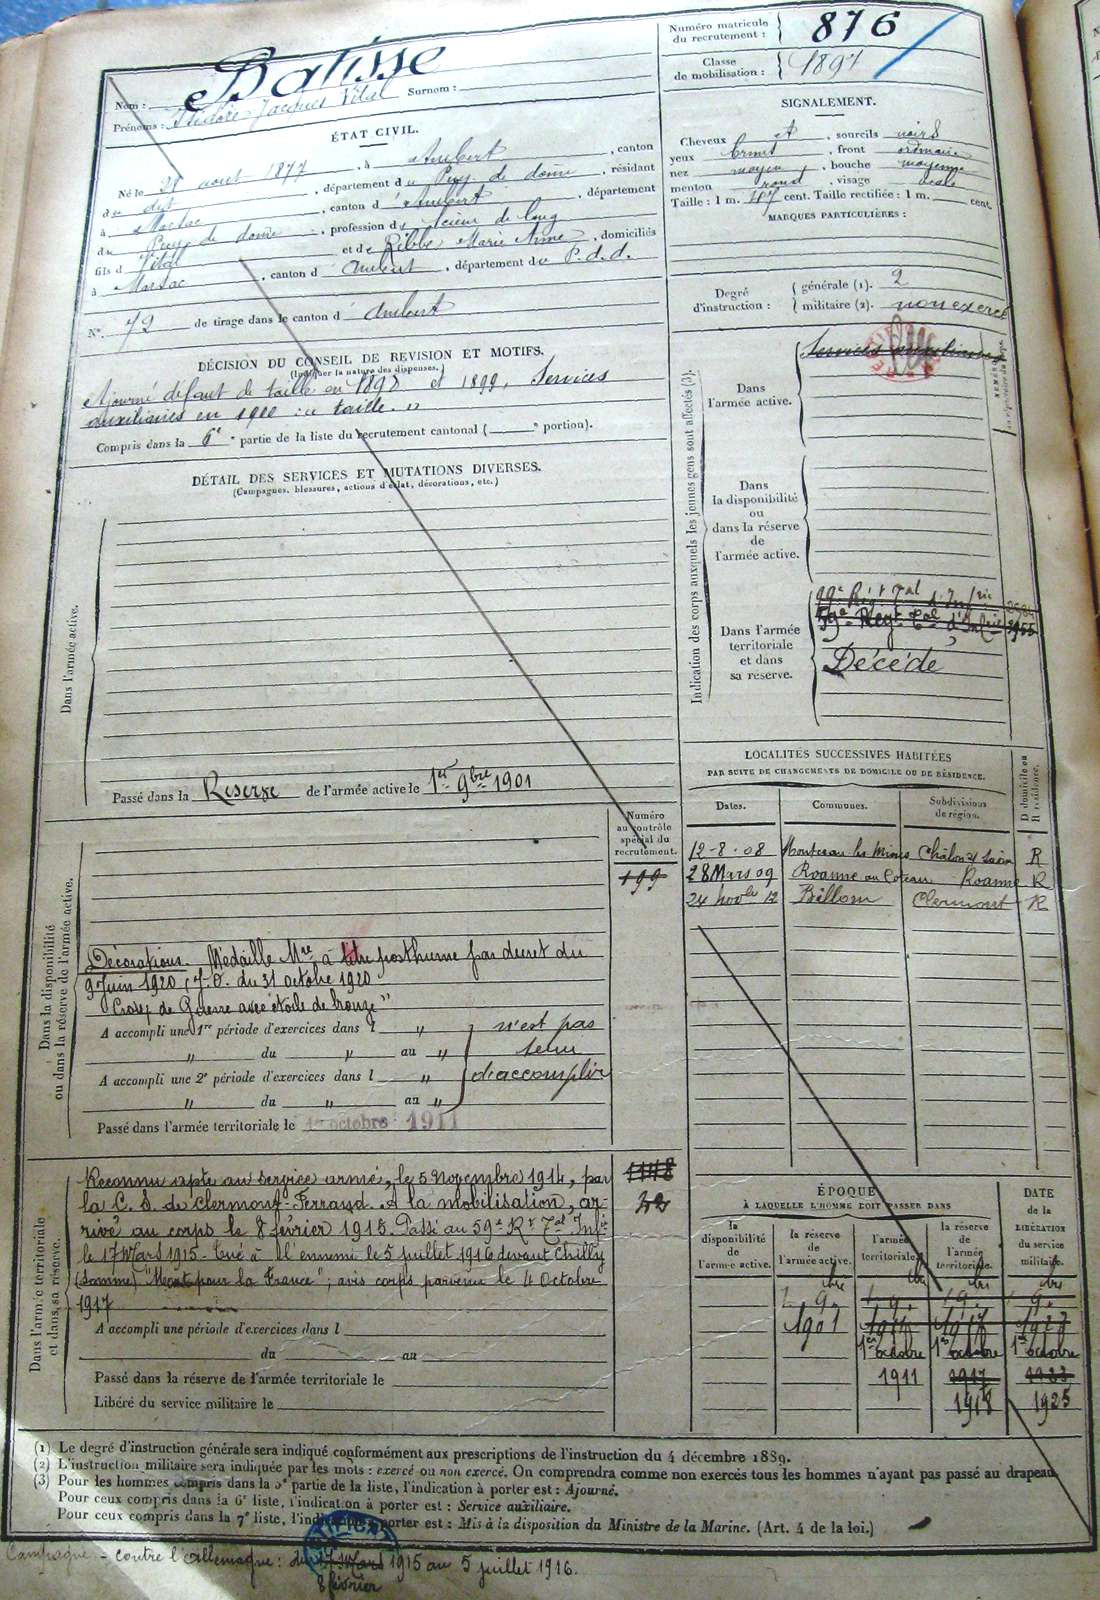 Numéro matricule du recrutement : 876
Classe de mobilisation : 1897
Nom : Batisse Surnom :
Prénoms : Isidore Jacques Vital
ÉTAT CIVIL.
Né le 21 aout 1877, à Ambert, canton
du dit, département du Puy de dome, résidant
à Marsac, canton d'Ambert, département
du Puy de dome, profession de Scieur de long
fils d Vital et de Ribbe Marie Anne, domiciliés
à Marsac, canton d Ambert, département du P. d. d.
N° 72 de tirage dans le canton d'Ambert
SIGNALEMENT.
Cheveux et, sourcils noirs
yeux bruns, front ordinaire
nez moyen, bouche moyenne
menton rond, visage ovale
Taille : 1 m. cent. Taille rectifiée : 1 m. cent.
MARQUES PARTICULIÈRES :
Degré d'instruction :
générale (1). 2
militaire (2). non exercé
DÉCISION DU CONSEIL DE REVISION ET MOTIFS.
(Indiquer la nature des dispenses.)
Ajourné défaut de taille en 1898 et 1899. Services
auxiliaires en 1900 : taille.
Compris dans la 6e partie de la liste du recrutement cantonal ( " portion).
DÉTAIL DES SERVICES ET MUTATIONS DIVERSES.
(Campagnes, blessures, actions d'éclat, décorations, etc.)
Dans l'armée active.
Passé dans la Réserve de l'armée active le 1er 9bre 1901
Indication des corps auxquels les jeunes gens sont affectés (3).
Dans l'armée active.
Services auxiliaires
Dans la disponibilité ou dans la réserve de l'armée active.
Dans l'armée territoriale et dans sa réserve.
99e Régt Tal d'Infrie
59e Regt Tal d'Infrie
Décédé
LOCALITÉS SUCCESSIVES HABITÉES
PAR SUITE DE CHANGEMENTS DE DOMICILE OU DE RÉSIDENCE.
Dates. Communes. Subdivisions de région. D domicile ou R résidence.
12-8-08 Montceau les Mines Châlon s/ Saône R
28 Mars 09 Roanne au Coteau Roanne R
24 novbre 12 Billom Clermont R
Numéro au contrôle spécial du recrutement.
199
Dans la disponibilité ou dans la réserve de l'armée active.
Décorations. Médaille Mre à titre posthume par decret du
9 Juin 1920, J.O. du 31 octobre 1920
"Croix de Guerre avec étoile de bronze"
A accompli une 1re période d'exercices dans l " n'est pas
" du " au " tenu
A accompli une 2e période d'exercices dans l " d'accomplir
" du " au "
Passé dans l'armée territoriale le 1er octobre 1911
Dans l'armée territoriale et dans sa réserve.
Reconnu apte au service armé, le 5 Novembre 1914, par
la C. S. de Clermont-Ferrand. A la mobilisation, ar-
rivé au corps le 8 février 1915. Passé au 59e Rt Tal Infie
le 17 Mars 1915 - Tué à l'ennemi le 5 juillet 1916 devant Chilly
(Somme) "Mort pour la France" ; avis corps parvenu le 4 Octobre
1917
1148
A accompli une période d'exercices dans l
du au
Passé dans la réserve de l'armée territoriale le
Libéré du service militaire le
ÉPOQUE
À LAQUELLE L'HOMME DOIT PASSER DANS
la disponibilité de l'armée active.
la réserve de l'armée active.
l'armée territoriale.
la réserve de l'armée territoriale.
DATE de la LIBÉRATION du service militaire.
1901 1914 1917 1927
1er octobre 1er octobre 1er octobre
1911 1917 1923
1918 1925
(1) Le degré d'instruction générale sera indiqué conformément aux prescriptions de l'instruction du 4 décembre 1889.
(2) L'instruction militaire sera indiquée par les mots : exercé ou non exercé. On comprendra comme non exercés tous les hommes n'ayant pas passé au drapeau.
(3) Pour les hommes compris dans la 5e partie de la liste, l'indication à porter est : Ajourné.
Pour ceux compris dans la 6e liste, l'indication à porter est : Service auxiliaire.
Pour ceux compris dans la 7e liste, l'indication à porter est : Mis à la disposition du Ministre de la Marine. (Art. 4 de la loi.)
Campagne - contre l'allemagne : du 17 Mars 1915 au 5 juillet 1916.
8 février